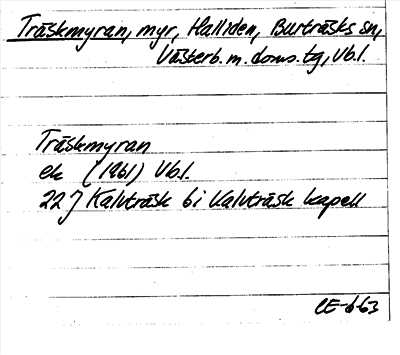 Träskmyran, myr, Halliden, Burträsks sn,
Västerb. m. doms. tg, Vb.l.
Träskmyran
ek (1961) Vb.l.
22 J Kalvträsk 6 i Kalvträsk kapell
CE-6-63